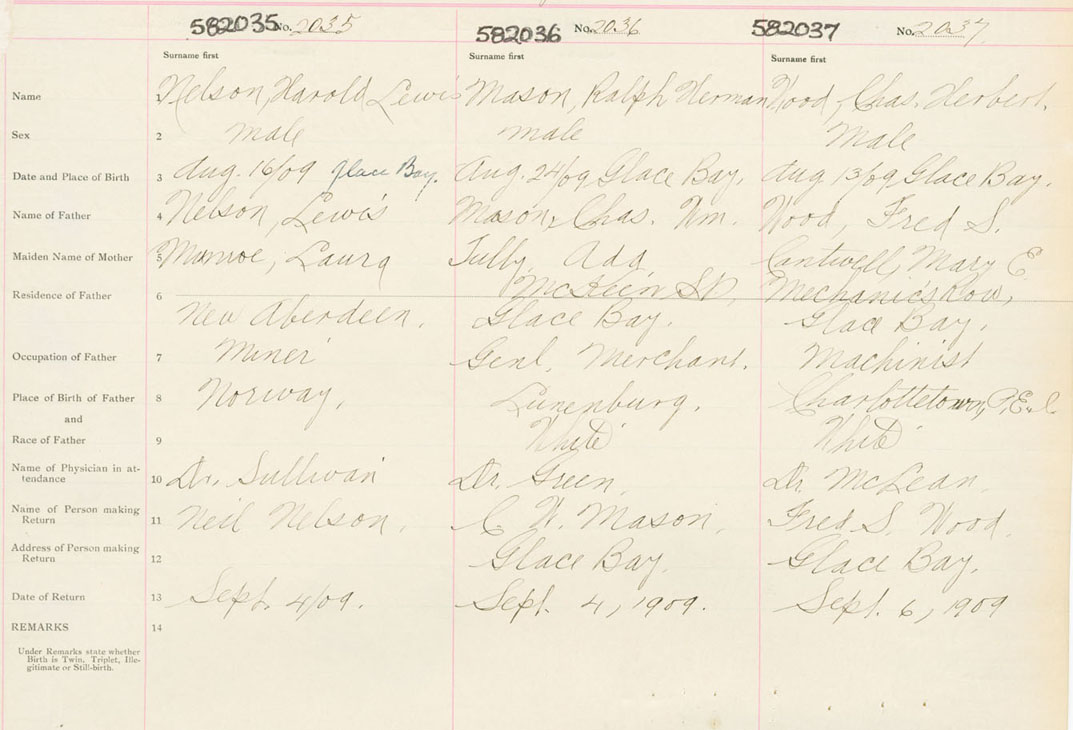 582035 No. 2035 582036 No. 2036 582037 No. 2037
Surname first Surname first Surname first
Name 1 Nelson, Harold Lewis Mason, Ralph Herman Wood, Chas. Herbert.
Sex 2 male male Male
Date and Place of Birth 3 Aug. 16/09 Glace Bay. Aug. 24/09 Glace Bay. Aug 13/09 Glace Bay.
Name of Father 4 Nelson, Lewis Mason, Chas. Wm. Wood, Fred S.
Maiden Name of Mother 5 Munroe, Laura Tully, Ada Cantwell, Mary E
McKeen St, Mechanics Row,
Residence of Father 6 New Aberdeen. Glace Bay. Glace Bay.
Occupation of Father 7 Miner Genl. Merchant. Machinist
Place of Birth of Father 8 Norway. Lunenburg. Charlottetown, P.E.I.
and
Race of Father 9 White White
Name of Physician in at-
tendance 10 Dr. Sullivan Dr. Green. Dr. McLean.
Name of Person making
Return 11 Neil Nelson. C W. Mason. Fred S. Wood.
Address of Person making
Return 12 Glace Bay. Glace Bay.
Date of Return 13 Sept. 4/09. Sept. 4, 1909. Sept. 6, 1909
REMARKS 14
Under Remarks state whether
Birth is Twin, Triplet, Ille-
gitimate or Still-birth.